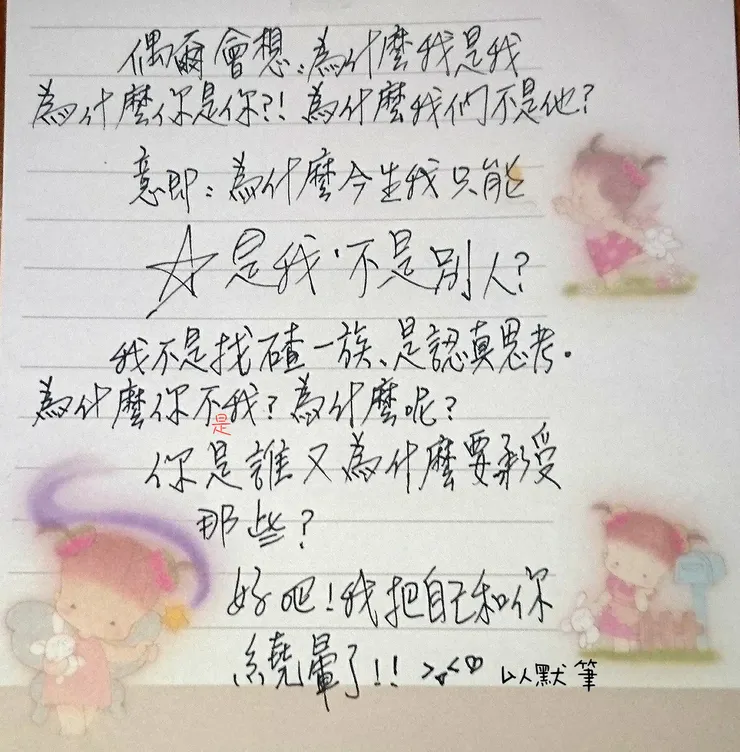 偶爾會想：為什麼我是我
為什麼你是你?! 為什麼我們不是他?
意即：為什麼今生我只能
☆是我，不是別人?
我不是找碴一族、是認真思考。
為什麼你不我? 為什麼呢?
是
你是誰又為什麼要承受
那些?
好吧!我把自己和你
繞暈了!! >.<♡ 以默筆